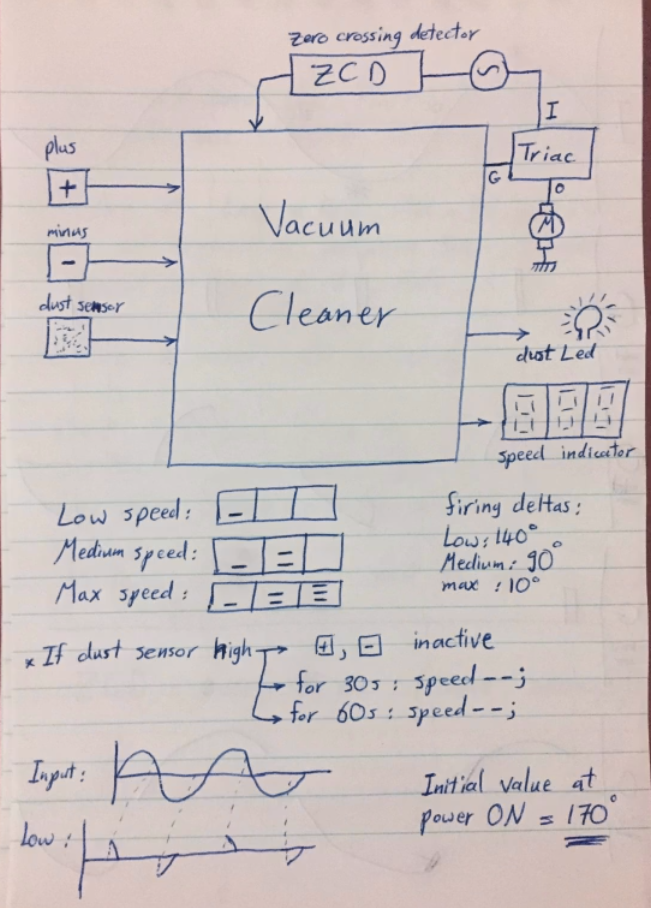 Zero crossing detector
ZCD
I
plus
+
Triac
G
O
Vacuum
Cleaner
M
minus
-
dust sensor
dust Led
speed indicator
Low speed:
Medium speed:
Max speed:
firing deltas:
Low: 140°
Medium: 90°
max : 10°
* If dust sensor high → + , - inactive
→ for 30s : speed --;
→ for 60s : speed --;
Input:
Low :
Initial value at
power ON = 170°